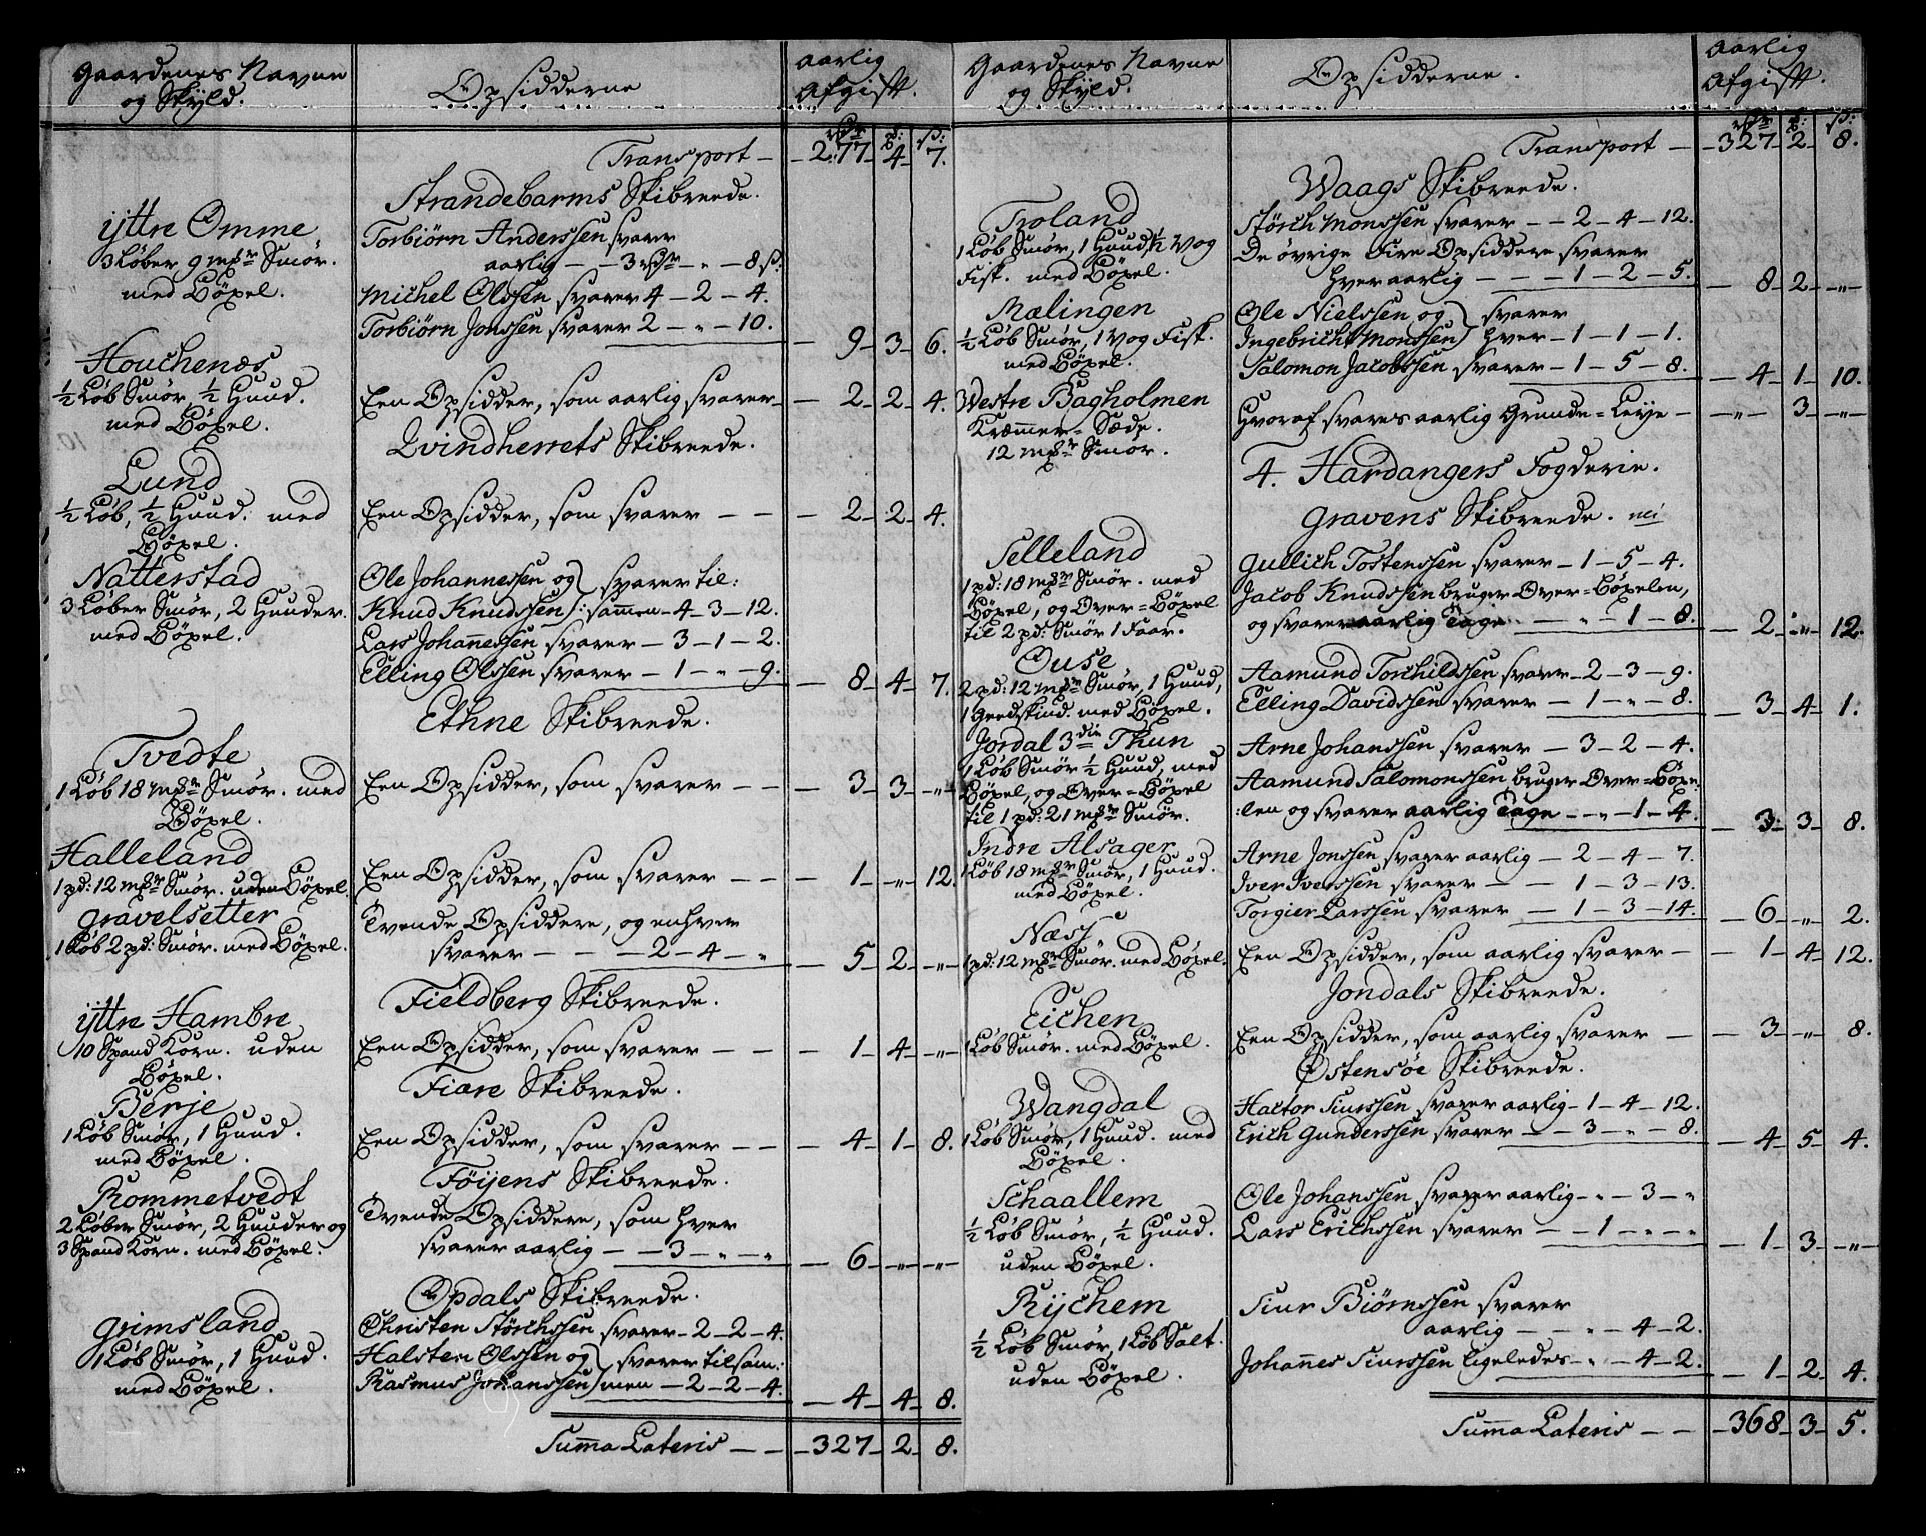 Gaardenes Navne
og Skÿld.
Opsidderne
aarlig
Afgift.
rdr m: s:
Transport — 277 - 4 - 7.
Strandebarms Skibreede.
ÿttre Omme
3 Løber 9 mkr Smør.
med Bøxel.
Torbiørn Anderssen svarer
aarlig — 3 rdr — „ — 8 s:
Michel Olssen svarer 4 — 2 — 4.
Torbiørn Jonssen svarer 2 — „ — 10.
— 9 - 3 - 6.
Houchenæs
½ Løb Smør, ½ Huud.
med Bøxel.
Een Opsidder, som aarlig svarer — 2 - 2 - 4.
Qvindherrets Skibreede.
Lund
½ Løb, ½ Huud. med
Bøxel.
Een Opsidder, som svarer — — 2 - 2 - 4.
Natterstad
3 Løber Smør, 2 Huuder.
med Bøxel.
Ole Johannessen og } svarer til:
Knud Knudssen } :sammen — 4 — 3 — 12.
Lars Johannessen svarer — 3 — 1 — 2.
Elling Olssen svarer — 1 — „ — 9.
— 8 - 4 - 7.
Ethne Skibreede.
Tvedte
1 Løb 18 mkr Smør. med
Bøxel.
Een Opsidder, som svarer — — 3 - 3 - „ —
Halleland
1 pd: 12 mkr Smør. uden Bøxel.
Een Opsidder, som svarer — — 1 - „ - 12.
Gravelsetter
1 Løb 2 pd: Smør. med Bøxel.
Tvende Opsiddere, og enhver
svarer — — — 2 — 4 — „
— 5 - 2 - „ —
Fieldberg Skibreede.
ÿttre Hambre
10 Spand Korn. uden
Bøxel.
Een Opsidder, som svarer — — 1 - 4 - „ —
Fiære Skibreede.
Berje
1 Løb Smør, 1 Huud.
med Bøxel.
Een Opsidder, som svarer — — 4 - 1 - 8.
Føÿens Skibreede.
Rommetvedt
2 Løber Smør, 2 Huuder og
3 Spand Korn. med Bøxel.
Tvende Opsiddere, som hver
svarer aarlig — — 3 — „ — „
— 6 - „ - „ —
Opdals Skibreede.
Grimsland
1 Løb Smør, 1 Huud.
med Bøxel.
Christen Størchssen svarer — 2 — 2 — 4.
Halsten Olssen og } svarer tilsam:
Rasmus Johanssen } men — 2 — 2 — 4.
— 4 - 4 - 8.
Suma Lateris — — 327 - 2 - 8.
Gaardenes Navne
og Skÿld.
Opsidderne.
aarlig
Afgift.
rdr m: s:
Transport — 327 - 2 - 8.
Waags Skibreede.
Troland
1 Løb Smør, 1 Huud, ½ Vog
Fisk. med Bøxel.
Størch Monssen svarer — — 2 — 4 — 12.
De øvrige Fire Opsiddere svarer
hver aarlig — — — 1 — 2 — 5.
— 8 - 2 - „ —
Mælingen
½ Løb Smør, 1 Vog Fisk.
med Bøxel.
Ole Nielssen og } svarer
Ingebricht Monssen } hver — 1 — 1 — 1.
Salomon Jacobssen svarer — 1 — 5 — 8.
— 4 - 1 - 10.
Westre Bagholmen
Kræmmer=Sæde.
12 mkr Smør.
Hvoraf svares aarlig Grunde=Leÿe — „ - 3 - „ —
4. Hardangers Fogderie.
Gravens Skibreede. nei
Selleland
1 pd: 18 mkr Smør. med
Bøxel, og Over=Bøxel
til 2 pd: Smør 1 Faar.
Gullich Tostenssen svarer — 1 — 5 — 4.
Jacob Knudssen bruger Over=Bøxelen,
og svarer aarlig Tage — „ — 1 — 8.
— 2 - „ - 12.
Ouse
2 pd: 12 mkr Smør, 1 Huud,
1 Geedskind. med Bøxel.
Aamund Torchildssen svarer — 2 — 3 — 9.
Elling Davidssen svarer — 1 — „ — 8.
— 3 - 4 - 1.
Jordal 3die Thun
1 Løb Smør ½ Huud, med
Bøxel, og Over=Bøxel
til 1 pd: 21 mkr Smør.
Arne Johanssen svarer — 3 — 2 — 4.
Aamund Salomonssen bruger Over=Bøxe:
:len og svarer aarlig Tage — „ — 1 — 4.
— 3 - 3 - 8.
Indre Alsager
1 Løb 18 mkr Smør, 1 Huud.
med Bøxel.
Arne Jonssen svarer aarlig — 2 — 4 — 7.
Iver Iverssen svarer — — 1 — 3 — 13.
Torgier Larssen svarer — 1 — 3 — 14.
— 6 - „ - 2.
Næss
1 pd: 12 mkr Smør. med Bøxel.
Een Opsidder, som aarlig svarer — 1 - 4 - 12.
Jondals Skibreede.
Eichen
1 Løb Smør. med Bøxel.
Een Opsidder, som aarlig svarer — — 3 - „ - 8.
Østensøe Skibreede.
Wangdal
1 Løb Smør, 1 Huud. med
Bøxel.
Hactor Siurssen svarer aarlig — 1 — 4 — 12.
Erich Gunderssen svarer — 3 — „ — 8.
— 4 - 5 - 4.
Schaallem
½ Løb Smør, ½ Huud.
uden Bøxel.
Ole Johanssen svarer aarlig — „ — 3 — „
Lars Erichssen svarer — — 1 — „ — „
— 1 - 3 - „ —
Rÿchem
½ Løb Smør, 1 Løb Salt.
uden Bøxel.
Siur Biørnssen svarer
aarlig — — „ — 4 — 2.
Johannes Siurssen ligeledes — „ — 4 — 2.
— 1 - 2 - 4.
Suma Lateris — — 368 - 3 - 5.